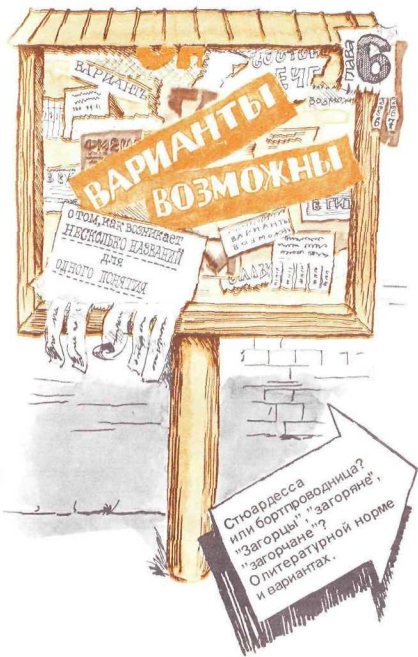 глава
6
ВАРИАНТЫ
ВАРИАНТЫ
ВОЗМОЖНЫ
о том, как возникает
НЕСКОЛЬКО НАЗВАНИЙ
для
ОДНОГО ПОНЯТИЯ
ВАРИАНТЫ
Стюардесса
или бортпроводница?
"Загорцы", "загоряне",
"загорчане"?
О литературной норме
и вариантах.